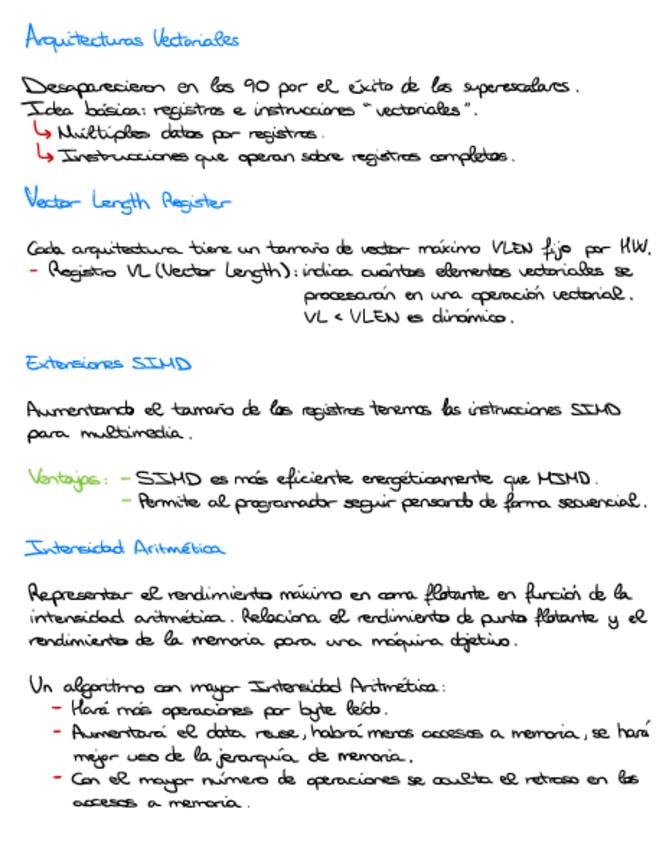 Arquitecturas Vectoriales
Desaparecieron en los 90 por el éxito de los superescalares.
Idea básica: registros e instrucciones "vectoriales".
↳ Múltiples datos por registros.
↳ Instrucciones que operan sobre registros completos.
Vector Length Register
Cada arquitectura tiene un tamaño de vector máximo VLEN fijo por HW.
- Registro VL (Vector Length): indica cuántos elementos vectoriales se
procesarán en una operación vectorial.
VL < VLEN es dinámico.
Extensiones SIMD
Aumentando el tamaño de los registros tenemos las instrucciones SIMD
para multimedia.
Ventajas: - SIMD es más eficiente energéticamente que MIMD.
- Permite al programador seguir pensando de forma secuencial.
Intensidad Aritmética
Representar el rendimiento máximo en coma flotante en función de la
intensidad aritmética. Relaciona el rendimiento de punto flotante y el
rendimiento de la memoria para una máquina objetivo.
Un algoritmo con mayor Intensidad Aritmética:
- Hará más operaciones por byte leído.
- Aumentará el data reuse, habrá menos accesos a memoria, se hará
mejor uso de la jerarquía de memoria.
- Con el mayor número de operaciones se oculta el retraso en los
accesos a memoria.